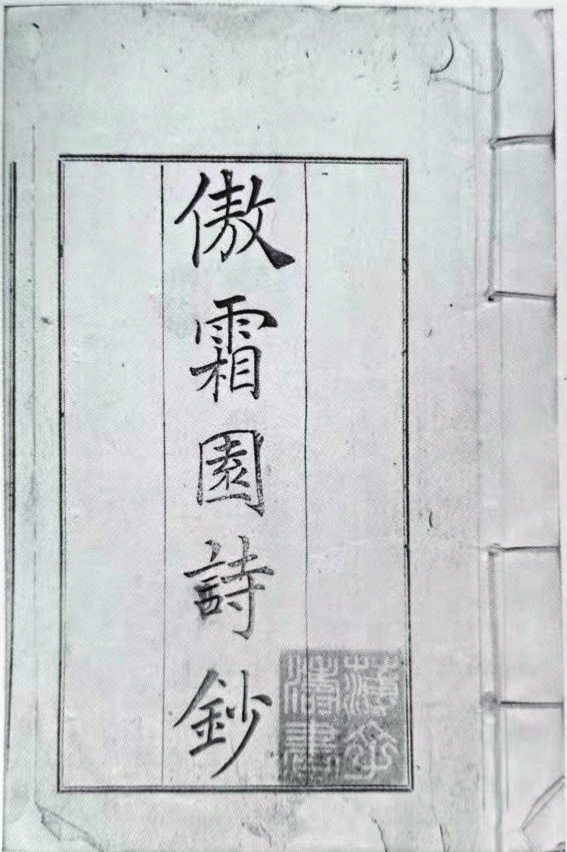 傲霜園詩鈔